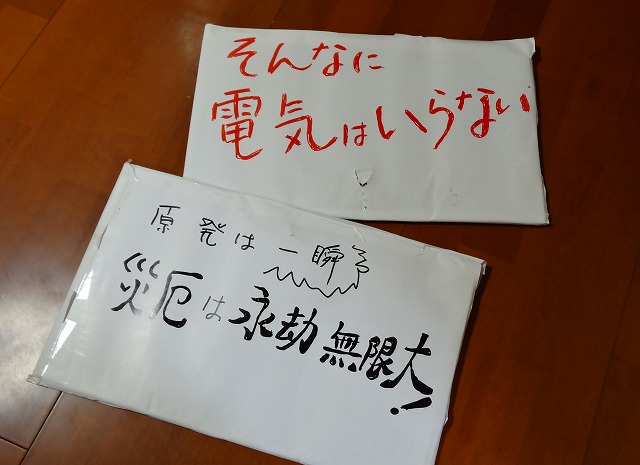 そんなに
電気はいらない
原発は一瞬
災厄は永劫無限大!